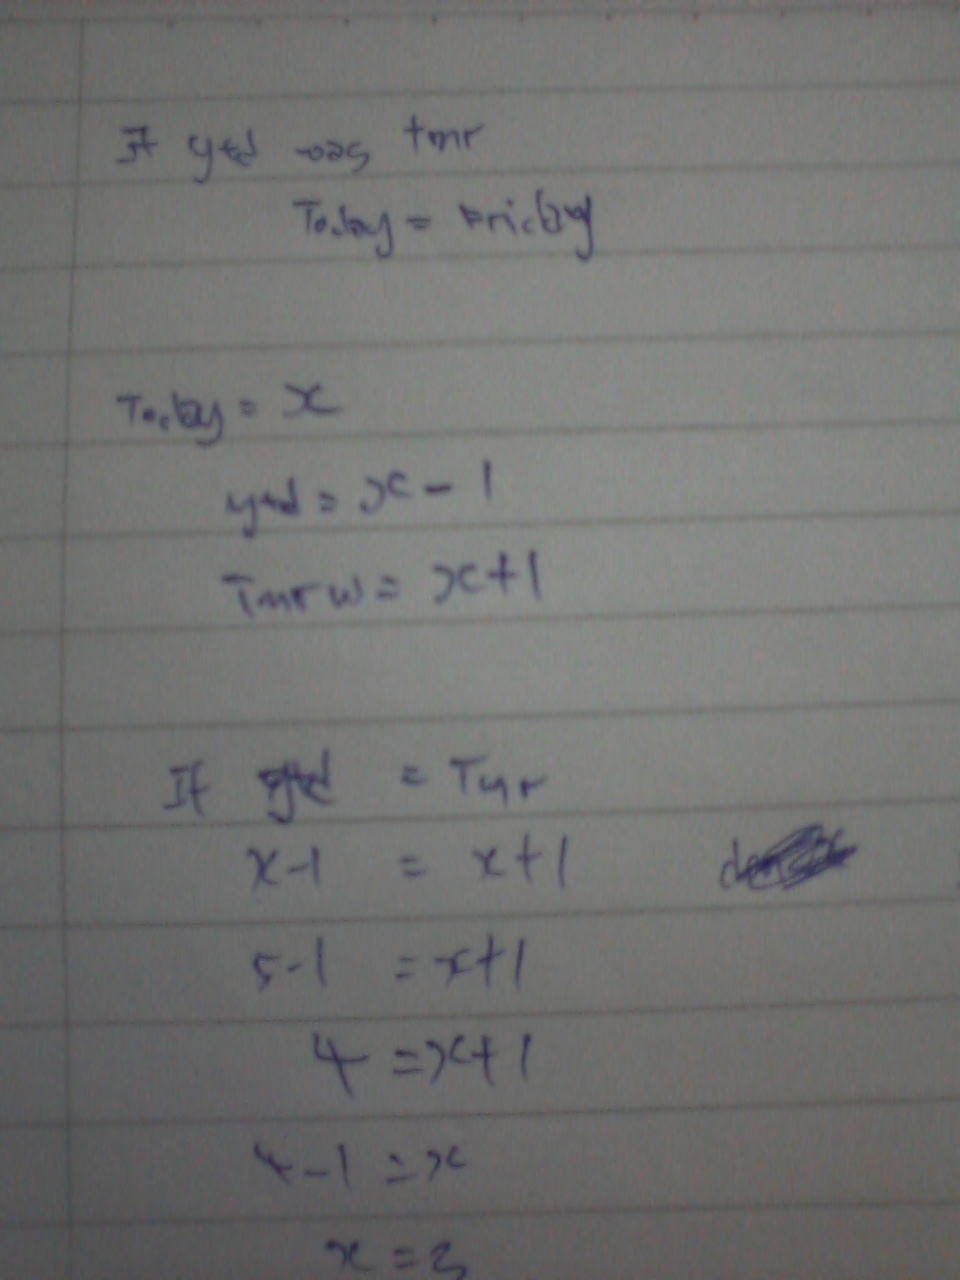 If ytd was tmr
Today = Friday
Today = x
ytd = x - 1
Tmrw = x+1
If ytd = Tmr
x-1 = x+1
5-1 = x+1
4 = x+1
4-1 = x
x = 3